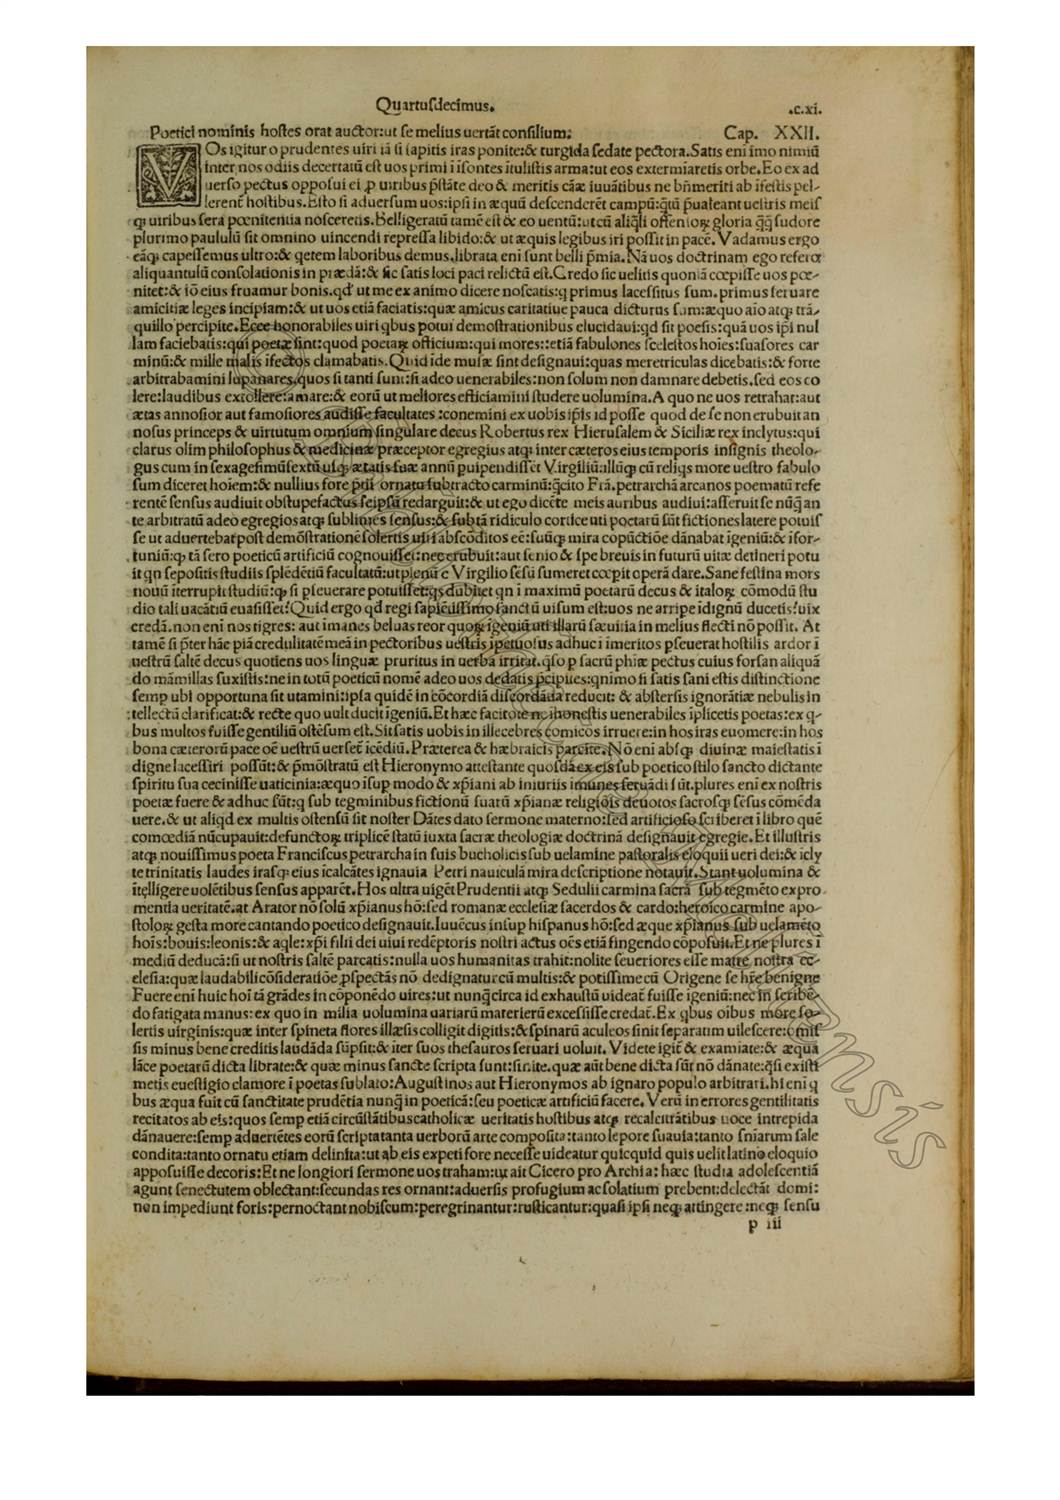 Quartusdecimus.
.c.xi.
Poetici nominis hostes orat auctor:ut se melius uertāt consilium: Cap. XXII.
VOs igitur o prudentes uiri iā si sapitis iras ponite:& turgida sedate pectora. Satis eni īmo nimiū
inter nos odiis decertatū est uos primi ī isontes ītulistis arma:ut eos extermiaretis orbe. Eo ex ad
uerso pectus opposui ei ꝑ uiribus p̄state deo & meritis cāæ iuuātibus ne bn̄meriti ab īfestis pel-
lerent̄ hostibus. Esto si aduersum uos:ipsi in æquū descenderēt campū:q̄tū p̄ualeant uestris meis
qꝫ uiribus sera pœnitentia nosceretis. Belligeratū tamē est & eo uentū:ut cū aliq̄li offensioꝝ gloria q̄q̄ sudore
plurimo paululū sit omnino uincendi repressa libido:& ut æquis legibus iri possit in pacē. Vadamus ergo
eāqꝫ capessemus ultro:& qetem laboribus demus. librata eni sunt belli p̄mia. Nā uos doctrinam ego refero
aliquantulū consolationis in prædā:& sic satis loci paci relictū est. Credo sic uelitis quoniā cœpisse uos pœ-
nitet:& iō eius fruamur bonis. qd' ut me ex animo dicere noscatis:q primus lacessitus sum. primus seruare
amicitiæ leges incipiam:& ut uos etiā faciatis:quæ amicus caritatiue pauca dicturus sum:æquo aīo atqꝫ trā-
quillo percipite. Ecce honorabiles uiri qbus potui demostrationibus elucidaui:qd sit poesis:quā uos ip̄i nul
lam faciebatis:qui poetæ sint:quod poetaꝝ officium:qui mores::etiā fabulones scelestos hoīes:suasores car
minū:& mille malis ifectos clamabatis. Quid īde musæ sint designaui:quas meretriculas dicebatis:& forte
arbitrabamini lupanares. quos si tanti sunt:si adeo uenerabiles:non solum non damnare debetis. sed eos co
lere:laudibus extollere:amare:& eorū ut meliores efficiamini studere uolumina. A quo ne uos retrahat:aut
ætas annosior aut famosiores audisse facultates :conemini ex uobis ip̄is id posse quod de se non erubuit an
nosus princeps & uirtutum omnium singulare decus Robertus rex Hierusalem & Siciliæ rex inclytus:qui
clarus olim philosophus & medicinæ præceptor egregius atqꝫ inter cæteros eius temporis insignis theolo-
gus cum in sexagesimūsextū usqꝫ ætatis suæ annū puipendisset Virgiliū:illūqꝫ cū reliqs more uestro fabulo
sum diceret hoiem:& nullius fore p̄tii ornatu subtracto carminū:q̄cito Frā. petrarchā arcanos poematū refe
rentē sensus audiuit obstupefactus seipsū redarguit:& ut ego dicēte meis auribus audiui:asseruit se nūq̄ an
te arbitratū adeo egregios atqꝫ sublimes sensus:& sub tā ridiculo cortice uti poetarū sūt fictiones latere potuis
se ut aduertebat post demōstrationē solertis uiri abscōditos eē:suūqꝫ mira copūctiōe dānabat igeniū:& ifor-
tuniū:qꝫ tā sero poeticū artificiū cognouisset:nec erubuit:aut senio & spe breuis in futurū uitæ detineri potu
it qn sepositis studiis splēdētiū facultatū:ut plenū e Virgilio sēsū sumeret cœpit operā dare. Sane festina mors
nouū īterrupit studiū:qꝫ si pseuerare potuisset:qs dubitet qn ī maximū poetarū decus & italoꝝ cōmodū stu
dio tali uacātiū euasisset? Quid ergo qd regi sapiētissimo sanctū uisum est:uos ne arripe īdignū ducetis? uix
credā. non eni nos tigres: aut īmanes beluas reor quoꝝ igeniū uti illarū sæuitia in melius flecti nō possit. At
tamē si p̄ter hāc piā credulitatē meā in pectoribus uestris ipetuosus adhuc ī imeritos pseuerat hostilis ardor ī
uestrū saltē decus quotiens uos linguæ pruritus in uerba irritat. q̄so p sacrū phiæ pectus cuius forsan aliquā
do māmillas suxistis:ne in totū poeticū nomē adeo uos dedatis p̄cipites:qnimo si satis sani estis distinctione
semp ubi opportuna sit utamini:ipsa quidē in cōcordiā discordātia reducit: & abstersis ignorātiæ nebulis in
tellectū clarificat:& recte quo uult ducit igeniū. Et hæc facitote ne ihonestis uenerabiles iplicetis poetas:ex q-
bus multos fuisse gentiliū ostēsum est. Sit satis uobis in illecebres comicos irruere:in hos iras euomere:in hos
bona cæterorū pace oē uestrū uerset̄ icēdiū. Præterea & hæbraicis parcite. Nō eni absqꝫ diuinæ maiestatis ī
digne lacessiri possūt:& p̄mōstratū est Hieronymo attestante quosdā ex eis sub poetico stilo sancto dictante
spiritu sua cecinisse uaticinia:æquo īsup modo & xp̄iani ab iniuriis imunes seruādi sūt. plures eni ex nostris
poetæ fuere & adhuc sūt:q sub tegminibus fictionū suarū xp̄ianæ religiois deuotos sacrosqꝫ sēsus cōmēda
uere. & ut aliqd ex multis ostensū sit noster Dātes dato sermone materno:sed artificioso scriberet ī libro quē
comœdiā nūcupauit:defunctoꝝ triplicē statū iuxta sacræ theologiæ doctrinā designauit egregie. Et illustris
atqꝫ nouissimus poeta Franciscus petrarcha in suis bucholicis sub uelamine pastoralis eloquii ueri dei:& icly
te trinitatis laudes irasqꝫ eius īcalcātes ignauia Petri nauiculā mira descriptione notauit. Stant uolumina &
ītelligere uolētibus sensus apparēt. Hos ultra uigēt Prudentii atqꝫ Sedulii carmina sacrā sub tegmēto expro
mentia ueritatē. at Arator nō solū xp̄ianus hō:sed romanæ ecclesiæ sacerdos & cardo:heroico carmine apo-
stoloꝝ gesta more cantando poetico designauit. Iuuēcus īnsup hispanus hō:sed æque xp̄ianus sub uelamēto
hoīs:bouis:leonis:& aqle:xp̄i filii dei uiui redēptoris nostri actus oēs etiā fingendo cōposuit. Et ne plures ī
mediū deducā:si ut nostris saltē parcatis:nulla uos humanitas trahit:nolite seueriores esse matre nostra ec-
clesia:quæ laudabili cōsideratiōe ꝓspectās nō dedignatur cū multis:& potissime cū Origene se hr̄e benigne
Fuere eni huic hoi tā grādes in cōponēdo uires:ut nunq̄ circa id exhaustū uideat̄ fuisse igeniū:nec in scribē-
do fatigata manus: ex quo in milia uolumina uariarū materierū excessisse credat̄. Ex qbus oibus more so-
lertis uirginis:quæ inter spineta flores illæsis colligit digitis:& spinarū aculeos sinit separatim uilescere:omis
sis minus bene creditis laudāda sūpsit:& iter suos thesauros seruari uoluit. Videte igit̄ & examiate:& æqua
lāce poetarū dicta librate:& quæ minus sancte scripta sunt:sinite. quæ aūt bene dicta sūt nō dānate:q̄si existi
metis euestigio clamore ī poetas sublato:Augustinos aut Hieronymos ab ignaro populo arbitrari. hi eni q
bus æqua fuit cū sanctitate prudētia nunq̄ in poeticā:seu poeticæ artificiū facere. Verū in errores gentilitatis
recitatos ab eis:quos semp etiā circūstātibus catholicæ ueritatis hostibus atqꝫ recalcitrātibus uoce intrepida
dānauere:semp aduertētes eorū scripta tanta uerborū arte composita:tanto lepore suauia:tanto sniarum sale
condita:tanto ornatu etiam delinita:ut ab eis expeti fore necesse uideatur quicquid quis uelit latino eloquio
apposuisse decoris:Et ne longiori sermone uos traham:ut ait Cicero pro Archia: hæc studia adolescentiā
agunt senectutem oblectant:secundas res ornant:aduersis profugium ac solatium prebent:delectāt domi:
non impediunt foris:pernoctant nobiscum:peregrinantur:rusticantur:quasi ipsi neqꝫ attingere :neqꝫ sensu
p iii